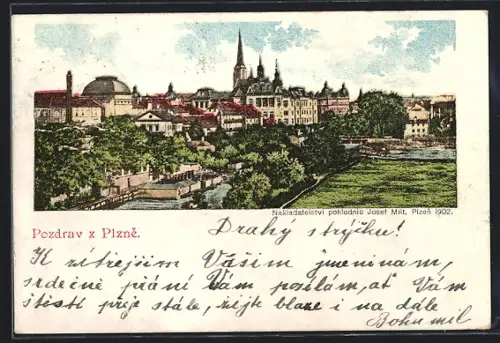 Nakladatelství pohlednic Josef Milt, Plzeň 1902.
Pozdrav z Plzně.
Drahý strýčku!
K zítřejším Vašim jmeninám,
srdečné přání Vám posílám, ať Vám
štěstí přeje stále, nejk blaze i na dále
Bohumil